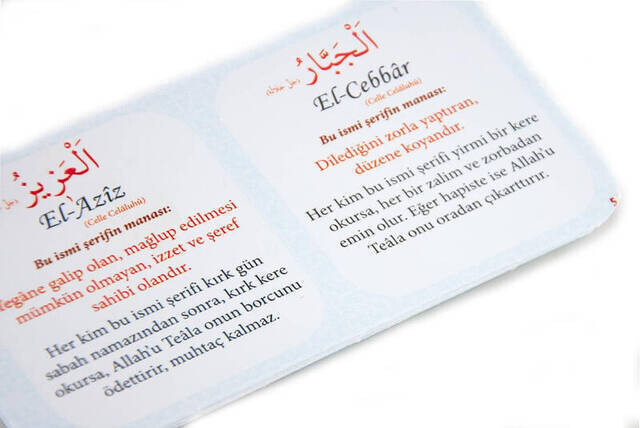 اَلْعَزِيزُ
El-Azîz
(Celle Celâluhû)
Bu ismi şerifin manası:
Yegâne galip olan, mağlup edilmesi
mümkün olmayan, izzet ve şeref
sahibi olandır.
Her kim bu ismi şerifi kırk gün
sabah namazından sonra, kırk kere
okursa, Allah'u Teâla onun borcunu
ödettirir, muhtaç kalmaz.
اَلْجَبَّارُ
(جل جلاله)
El-Cebbâr
(Celle Celâluhû)
Bu ismi şerifin manası:
Dilediğini zorla yaptıran,
düzene koyandır.
Her kim bu ismi şerifi yirmi bir kere
okursa, her bir zalim ve zorbadan
emin olur. Eğer hapiste ise Allah'u
Teâla onu oradan çıkarttırır.
5